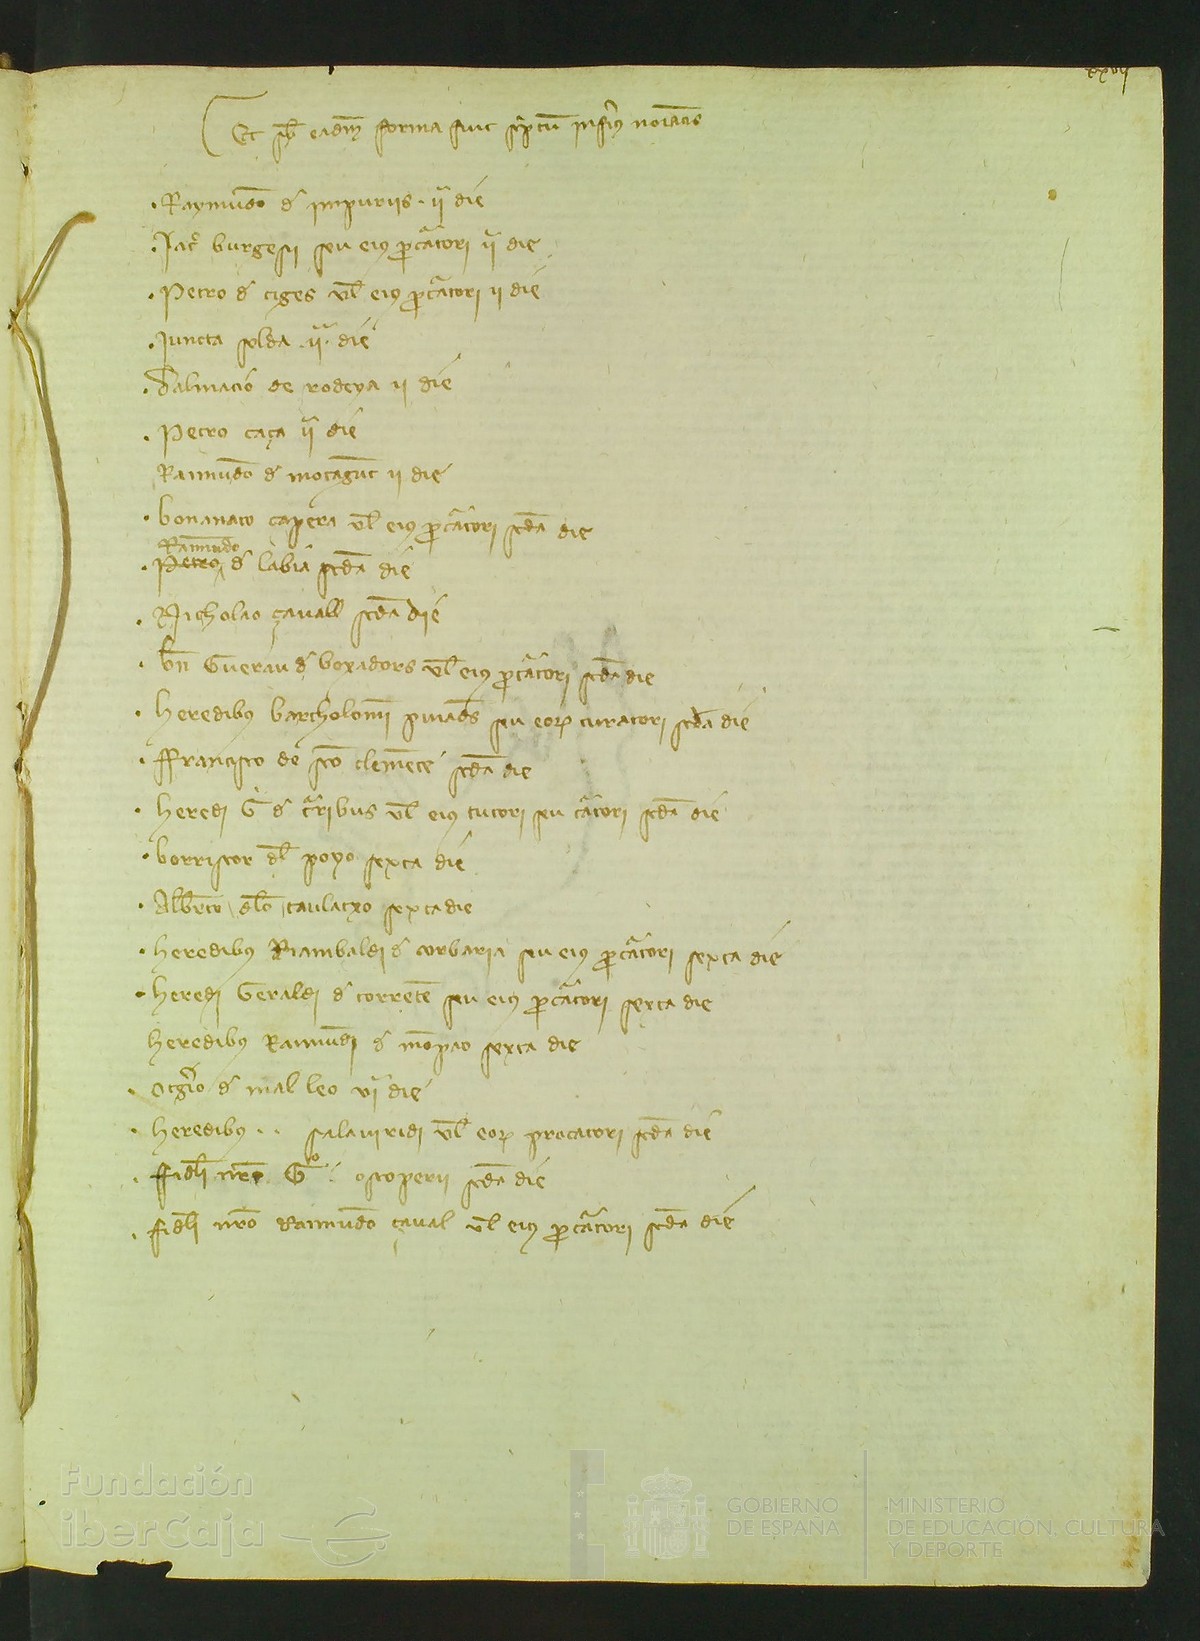 xxvij
Et sub eadem forma fuit scriptum inferius nominatis
Raymundo de impuriis ii die
Jaco burgesii seu eius procuratori ii die
Petro de ciges vel eius procuratori ii die
Juncta solda ii die
dalmacio de rodeya ii die
Petro caça ii die
Raimundo de ii die
bonanato çapera vel eius procuratori secunda die
Raimundo
Petro de labia secunda die
Nicholao çavall secunda die
Guerau de boxadors vel eius procuratori secunda die
heredibus bartholomei seu eorum curatori secunda die
ffrancisco de sancto clemente secunda die
heredi G de vel eius tutori seu curatori secunda die
del poyo sexta die
Alberto sexta die
heredibus Riambaldi de corbaria seu eius procuratori sexta die
heredi Geraldi de corrente seu eius procuratori sexta die
heredibus Raimundi de monpao sexta die
ocgerio de mal leo vi die
heredibus . . salavridi vel eorum procuratori secunda die
fideli nostro G ostoperii secunda die
fideli nostro Raimundo çaval vel eius procuratori secunda die
Fundación
iberCaja
GOBIERNO
DE ESPAÑA
MINISTERIO
DE EDUCACIÓN, CULTURA
Y DEPORTE